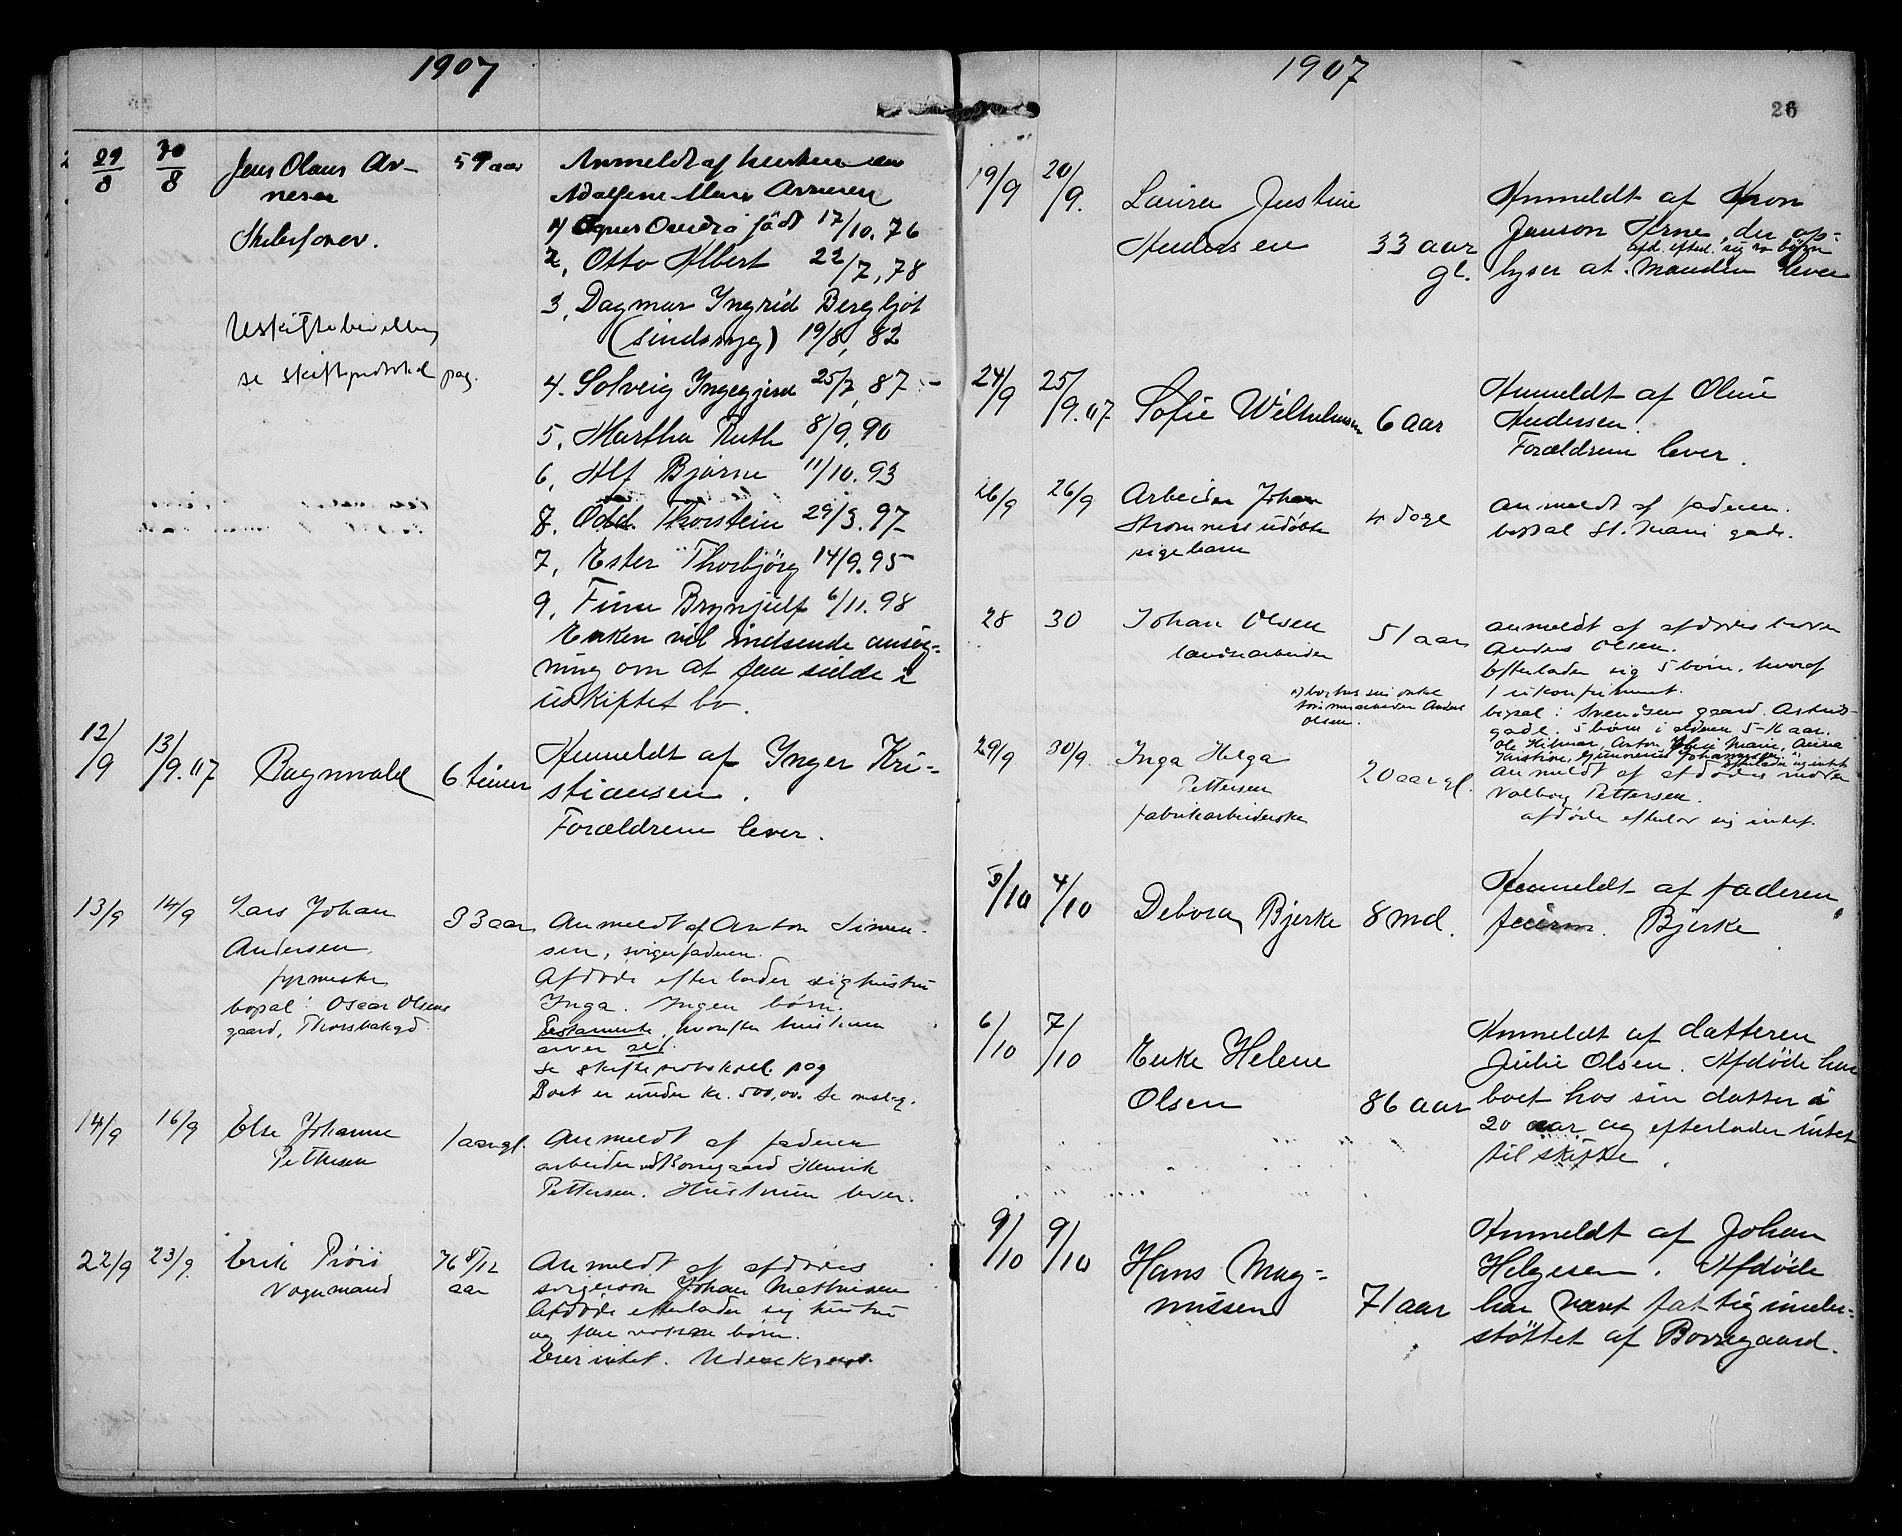 1907
29/8 30/8 Jens Olaus Ar-
nesen
59 aar
Anmeldt af
Arnesen
1) født 17/10. 76
2, Otto Albert 22/7, 78
3, Dagmar Ingrid Bergljot
(sindssyg) 19/8, 82
Uskiftebevilling
se skifteprotokol pag.
4. Solveig Ingegjerd 25/7, 87
5, Martha Ruth 8/9. 90
6, Alf Bjarne 11/10. 93
8. Odd Thorstein 29/3. 97
7, Ester Thorbjörg 14/9. 95
9, Finn Brynjulf 6/11. 98
Enken vil indsende ansøg-
ning om at faa sidde i
uskiftet bo.
12/9 13/9. 07 Ragnvald 6 timer
Anmeldt af Inger Kri-
stiansen.
Forældrene lever.
13/9 14/9 Lars Johan
Andersen
fyrmester
bopæl: Oscar Olsens
gaard, Thorsbakgd.
33 aar
Anmeldt af Anton Simen-
sen, svigerfaderen.
Afdøde efterlader sig hustru
Inga. Ingen børn.
Testamente, hvorefter hustruen
arver alt.
se skifteprotokol pag
Boet er under kr. 500,00.
14/9 16/9 Else Johanne
Pettersen
1 aar gl.
Anmeldt af faderen
arbeider ved Borregaard Henrik
Pettersen. Hustruen lever.
22/9 23/9. Erik
Vognmand
76 8/12
aar
Anmeldt af afdødes
svigersøn Johan Mathisen
Afdøde efterlader sig hustru
og fire voksne børn.
Eier intet.
1907
26
19/9 20/9. Laura Justine
Andersen
33 aar
gl.
Anmeldt af Aron
Janson Arne, der op-
lyser at Manden lever
24/9 25/9. 07 Sofie Wilhelmsen 6 aar
Anmeldt af Oline
Andersen.
Forældrene lever.
26/9 26/9 Arbeider Johan
Strømnes udøbte
pigebarn
4 dage
Anmeldt af faderen.
bopæl St. Marie gade.
28 30 Johan Olsen
landarbeider
51 aar
anmeldt af afdødes
Anders Olsen.
Efterlader sig 5 børn, hvoraf
1 ukonfirmert.
bopæl: Svendsens gaard
gade. 5 børn i alderen 5-16 aar.
x) bor hos sin onkel
tømmerarbeider Anders
Olsen.
29/9 30/9. Inga Helga
Pettersen
fabrikarbeiderske
20 aar gl.
anmeldt af afdødes moder
Valborg Pettersen.
afdøde efterlod sig intet.
3/10 4/10 Debora Bjerke 8 md.
Anmeldt af faderen,
Bjerke
6/10 7/10 Enke Helene
Olsen
86 aar
Anmeldt af datteren
Julie Olsen. Afdøde har
boet hos sin datter i
20 aar og efterlader intet
til skifte.
9/10 9/10 Hans Mag-
nussen
71 aar
Anmeldt af Johan
Helgesen. Afdøde
har været fattigunder-
støttet af Borregaard.